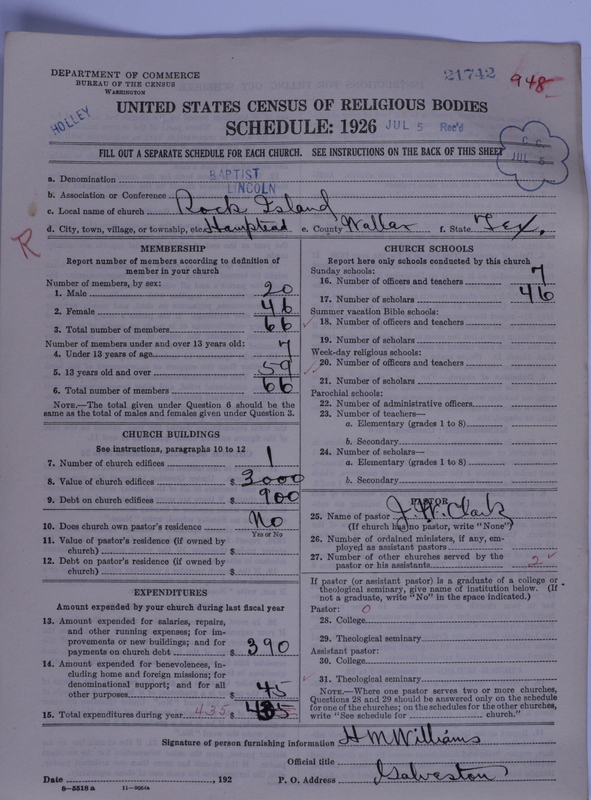 DEPARTMENT OF COMMERCE
BUREAU OF THE CENSUS
WASHINGTON
21742
948
HOLLEY
UNITED STATES CENSUS OF RELIGIOUS BODIES
SCHEDULE: 1926
JUL 5 Rec'd
FILL OUT A SEPARATE SCHEDULE FOR EACH CHURCH. SEE INSTRUCTIONS ON THE BACK OF THIS SHEET
JUL 5
a. Denomination BAPTIST
b. Association or Conference LINCOLN
c. Local name of church Rock Island
d. City, town, village, or township, etc. Hampstead e. County Wallar f. State Tex.
R
MEMBERSHIP
Report number of members according to definition of
member in your church
Number of members, by sex:
1. Male 20
2. Female 46
3. Total number of members 66
Number of members under and over 13 years old:
4. Under 13 years of age 7
5. 13 years old and over 59
6. Total number of members 66
NOTE.—The total given under Question 6 should be the
same as the total of males and females given under Question 3.
CHURCH BUILDINGS
See instructions, paragraphs 10 to 12
7. Number of church edifices 1
8. Value of church edifices $ 3000
9. Debt on church edifices $ 900
10. Does church own pastor's residence No
Yes or No
11. Value of pastor's residence (if owned by
church) $
12. Debt on pastor's residence (if owned by
church) $
EXPENDITURES
Amount expended by your church during last fiscal year
13. Amount expended for salaries, repairs,
and other running expenses; for im-
provements or new buildings; and for
payments on church debt $ 390
14. Amount expended for benevolences, in-
cluding home and foreign missions; for
denominational support; and for all
other purposes $ 45
15. Total expenditures during year 435 $ 435
CHURCH SCHOOLS
Report here only schools conducted by this church
Sunday schools:
16. Number of officers and teachers 7
17. Number of scholars 46
Summer vacation Bible schools:
18. Number of officers and teachers
19. Number of scholars
Week-day religious schools:
20. Number of officers and teachers
21. Number of scholars
Parochial schools:
22. Number of administrative officers
23. Number of teachers—
a. Elementary (grades 1 to 8)
b. Secondary
24. Number of scholars—
a. Elementary (grades 1 to 8)
b. Secondary
PASTOR
25. Name of pastor J. W. Clark
(If church has no pastor, write "None")
26. Number of ordained ministers, if any, em-
ployed as assistant pastors
27. Number of other churches served by the
pastor or his assistants 2
If pastor (or assistant pastor) is a graduate of a college or
theological seminary, give name of institution below. (If
not a graduate, write "No" in the space indicated.)
Pastor: 0
28. College
29. Theological seminary
Assistant pastor:
30. College
31. Theological seminary
NOTE.—Where one pastor serves two or more churches,
Questions 28 and 29 should be answered only on the schedule
for one of the churches; on the schedules for the other churches,
write "See schedule for church."
Signature of person furnishing information H M Williams
Official title
Date , 192 P. O. Address Galveston
8-5518 a